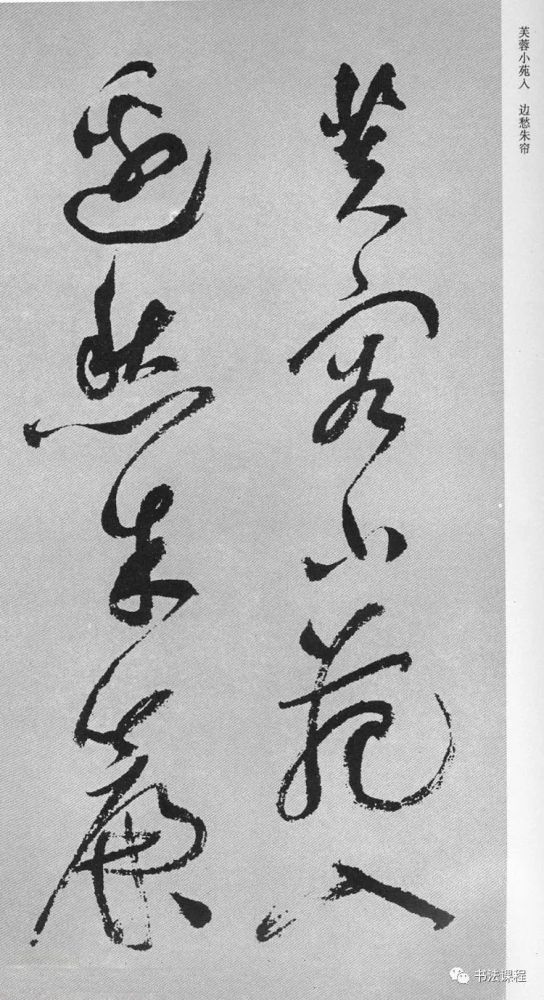 芙蓉小苑人 边愁朱帘
芙容小苑入
邊愁朱簾
书法课程